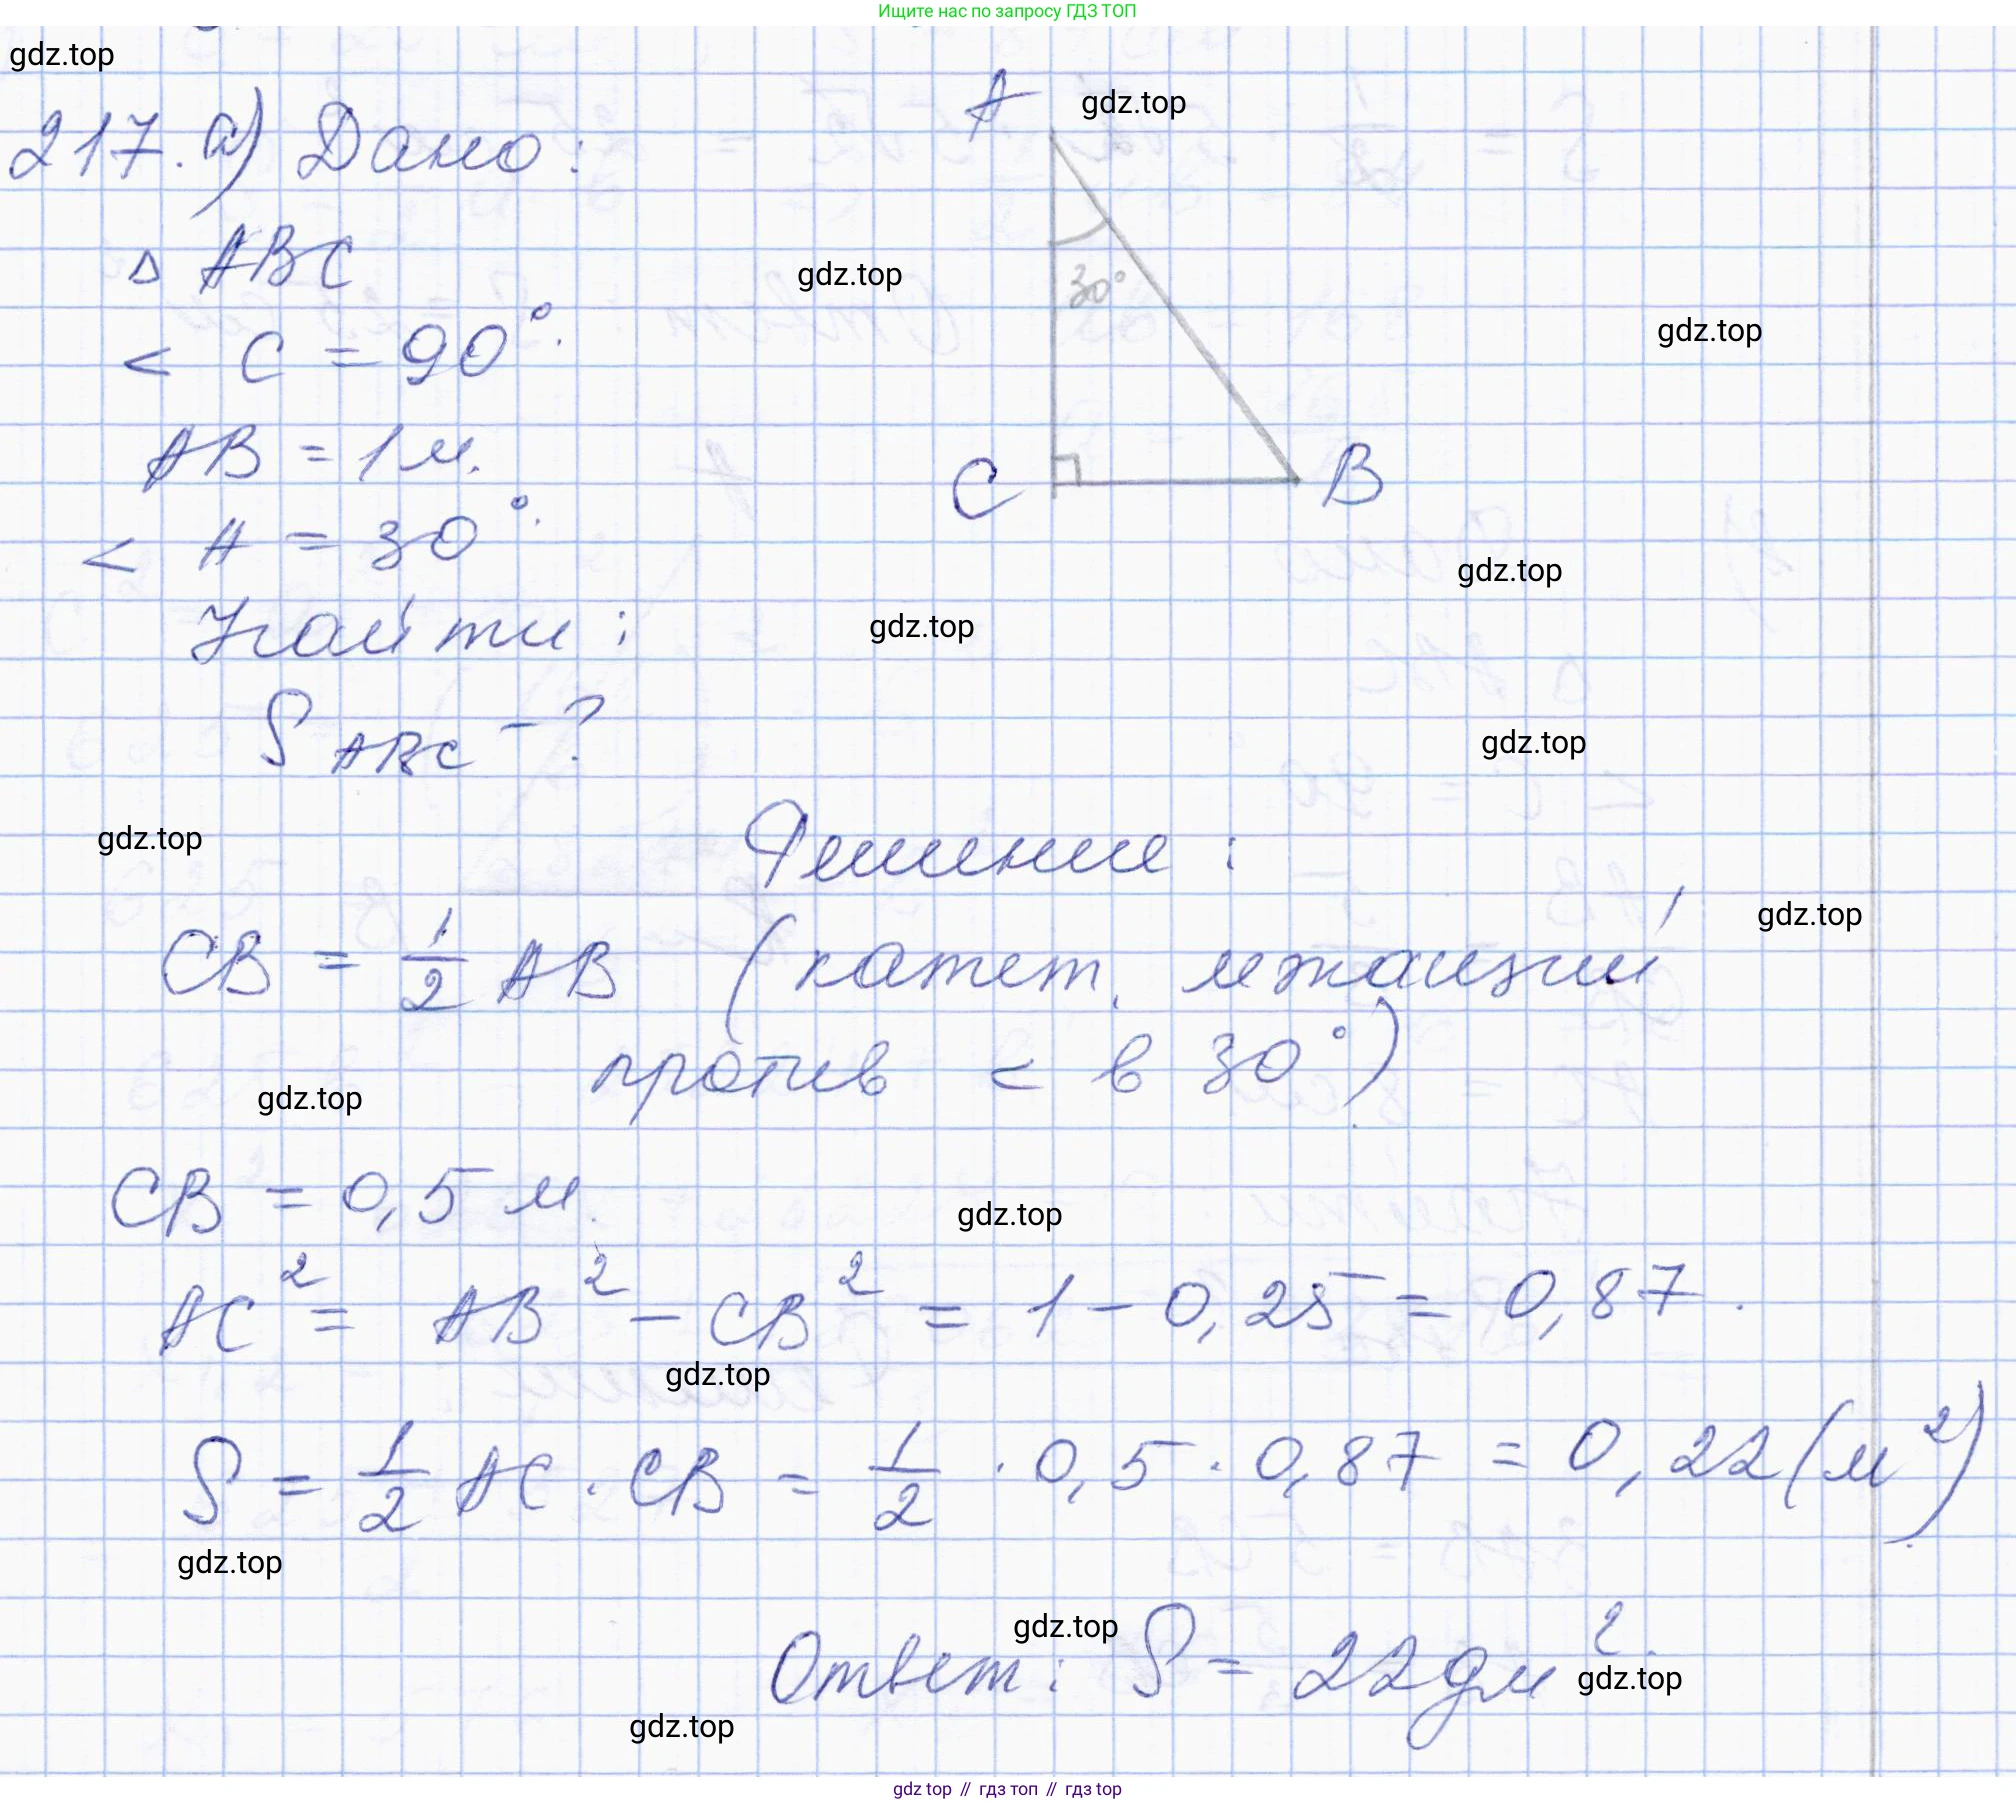 Ищите нас по запросу ГДЗ ТОП
gdz.top
217. а) Дано:
A
gdz.top
△ ABC
gdz.top
30°
< C = 90°.
gdz.top
AB = 1 м.
C
B
< A = 30°.
gdz.top
Найти:
gdz.top
S ABC - ?
gdz.top
gdz.top
Решение:
gdz.top
CB = 1/2 AB (катет, лежащий
против < в 30°)
gdz.top
CB = 0,5 м.
gdz.top
AC² = AB² - CB² = 1 - 0,25 = 0,87.
gdz.top
S = 1/2 AC · CB = 1/2 · 0,5 · 0,87 = 0,22 (м²)
gdz.top
gdz.top
Ответ: S = 22 дм².
gdz.top
gdz.top
gdz top // гдз топ // гдз top